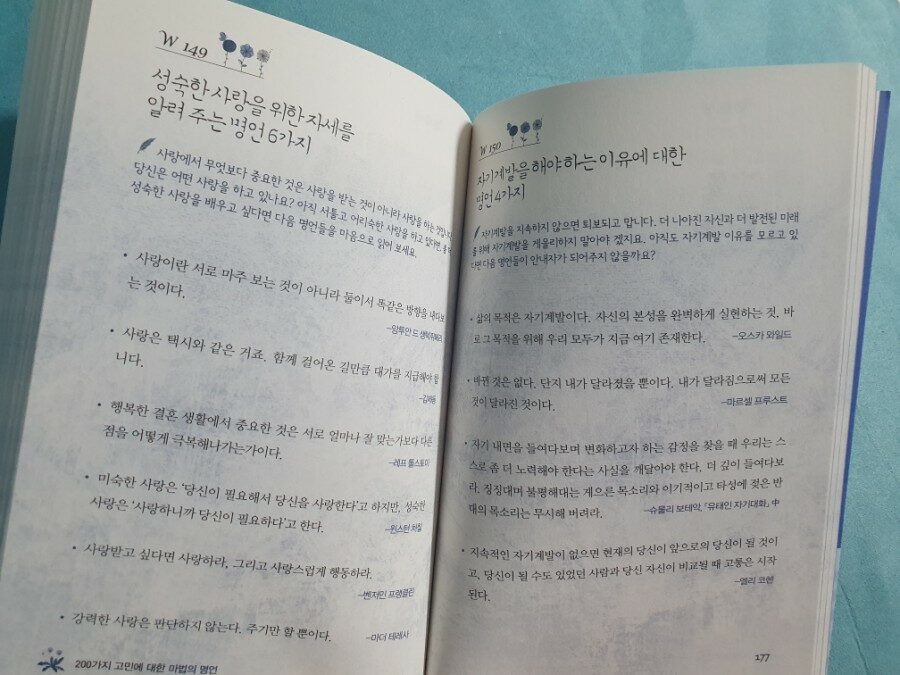 W 149
성숙한 사랑을 위한 자세를
알려 주는 명언 6가지
사랑에서 무엇보다 중요한 것은 사랑을 받는 것이 아니라 사랑을 하는 것입니다.
당신은 어떤 사랑을 하고 있나요? 아직 서툴고 어리숙한 사랑을 하고 있다면, 좀 더
성숙한 사랑을 배우고 싶다면 다음 명언들을 마음으로 읽어 보세요.
• 사랑이란 서로 마주 보는 것이 아니라 둘이서 똑같은 방향을 내다보
는 것이다.
–앙투안 드 생텍쥐페리
• 사랑은 택시와 같은 거죠. 함께 걸어온 길만큼 대가를 지급해야 합
니다.
• 행복한 결혼 생활에서 중요한 것은 서로 얼마나 잘 맞는가보다 다른
점을 어떻게 극복해나가는가이다.
–레프 톨스토이
• 미숙한 사랑은 '당신이 필요해서 당신을 사랑한다'고 하지만, 성숙한
사랑은 '사랑하니까 당신이 필요하다'고 한다.
–윈스턴 처칠
• 사랑받고 싶다면 사랑하라, 그리고 사랑스럽게 행동하라.
–벤저민 프랭클린
• 강력한 사랑은 판단하지 않는다. 주기만 할 뿐이다.
–마더 테레사
200가지 고민에 대한 마법의 명언
W 150
자기계발을 해야 하는 이유에 대한
명언 4가지
자기계발을 지속하지 않으면 퇴보되고 맙니다. 더 나아진 자신과 더 발전된 미래
을 위해 자기계발을 게을리하지 말아야 겠지요. 아직도 자기계발 이유를 모르고 있
다면 다음 명언들이 안내자가 되어주지 않을까요?
• 삶의 목적은 자기계발이다. 자신의 본성을 완벽하게 실현하는 것. 바
로 그 목적을 위해 우리 모두가 지금 여기 존재한다.
–오스카 와일드
• 바뀐 것은 없다. 단지 내가 달라졌을 뿐이다. 내가 달라짐으로써 모든
것이 달라진 것이다.
–마르셀 프루스트
• 자기 내면을 들여다보며 변화하고자 하는 감정을 찾을 때 우리는 스
스로 좀 더 노력해야 한다는 사실을 깨달아야 한다. 더 깊이 들여다보
라. 징징대며 불평해대는 게으른 목소리와 이기적이고 타성에 젖은 반
대의 목소리는 무시해 버려라.
–슈물리 보테악, 「유태인 자기대화」 中
• 지속적인 자기계발이 없으면 현재의 당신이 앞으로의 당신이 될 것이
고, 당신이 될 수도 있었던 사람과 당신 자신이 비교될 때 고통은 시작
된다.
–엘리 코헨
177